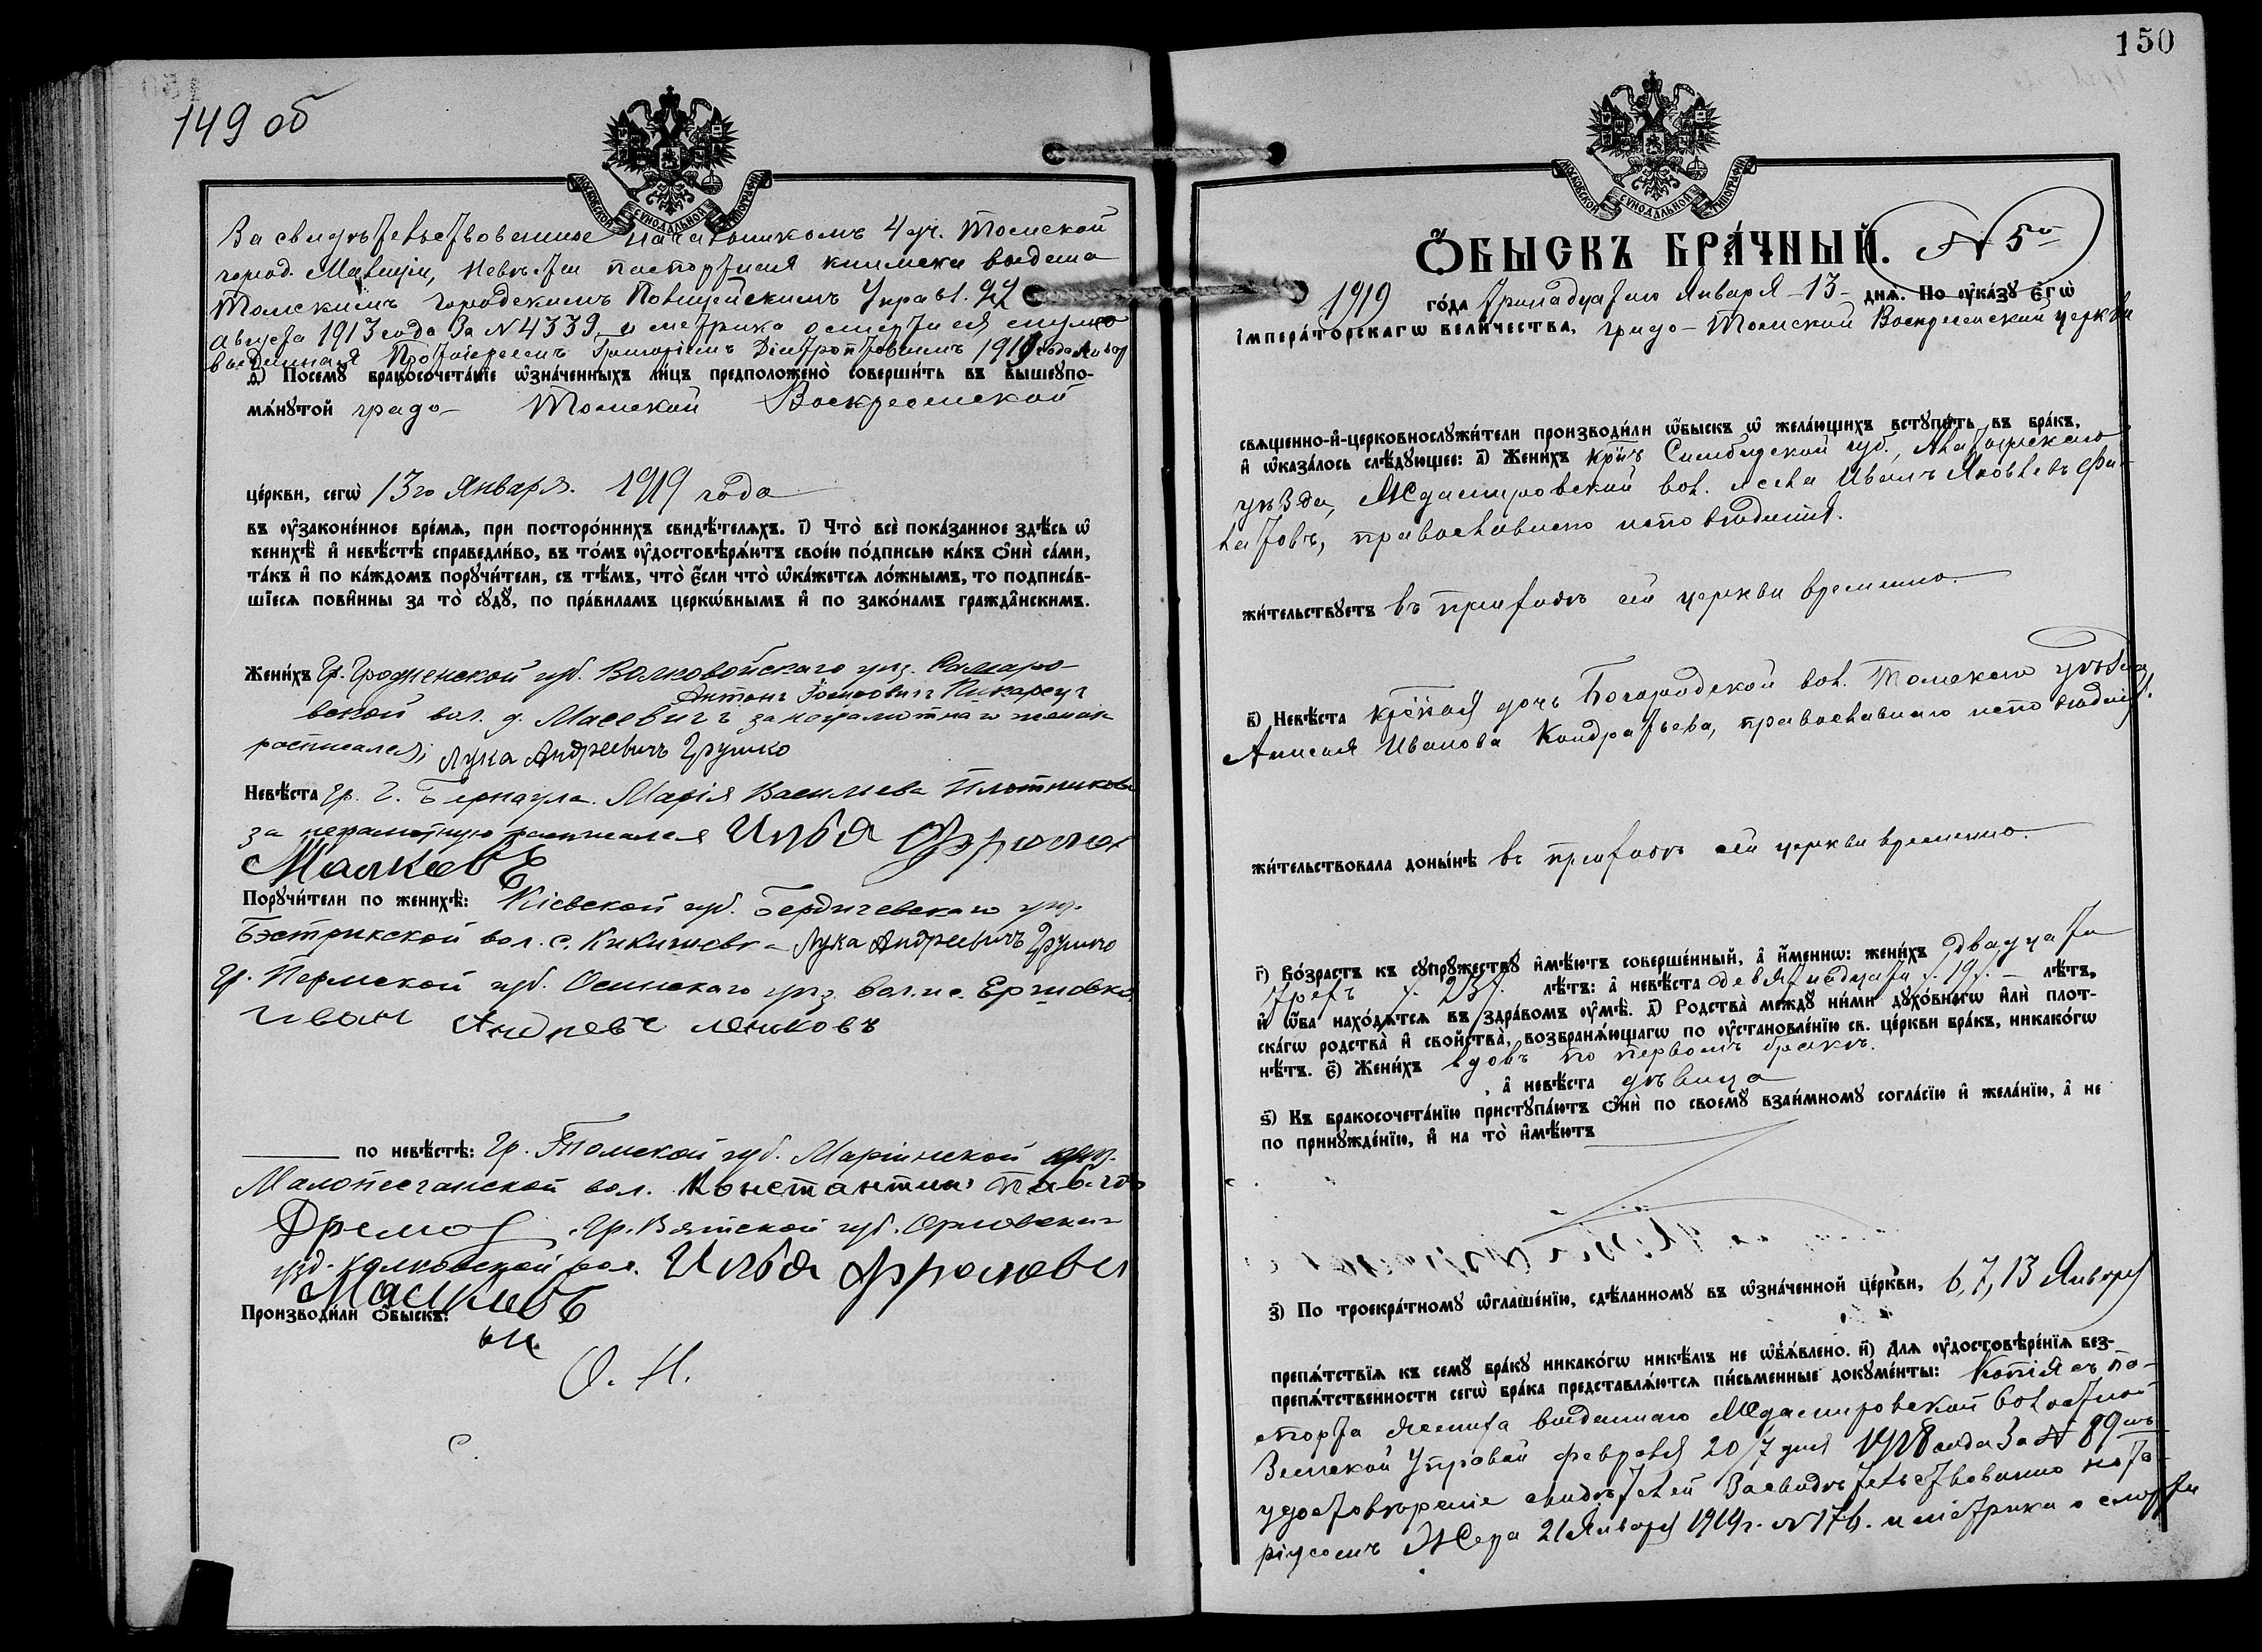 149 об
МОСКОВСКОЙ СѴНОДАЛЬНОЙ ТИПОГРАФІИ
Засвидѣтельствованное начальникомъ 4 уч. Томской
город. Милиціи, Невѣсты паспортная книжка выдана
Томскимъ Городскимъ Полицейскимъ Управл. 27
августа 1913 года За № 4339 и метрика о смерти
выданная Протоіереемъ 1919 года
д҃) Посемꙋ̀ бракосочета́нїе ѡ҆зна́ченныхъ ли́цъ предположено̀ соверши́ть въ вышеꙋпо-
мѧ́нꙋтой градо- Томской Воскресенской
це́ркви, сегѡ̀ 13го Января. 1919 года
въ ᲂу҆законе́нное вре́мѧ, при посторо́ннихъ свидѣ́телѧхъ. і҃) Что̀ всѐ пока́занное здѣ́сь ѡ҆
женихѣ̀ и҆ невѣ́стѣ справедли́во, въ то́мъ ᲂу҆достовѣрѧ́ютъ свое́ю по́дписью ка́къ ѻ҆нѝ са́ми,
та́къ и҆ по ка́ждомъ порꙋчи́тели, съ тѣ́мъ, что̀ є҆́сли что̀ ѡ҆ка́жетсѧ ло́жнымъ, то подписа́в-
шїесѧ пови́нны за то̀ сꙋдꙋ̀, по пра́виламъ церкѡ́внымъ и҆ по зако́намъ гражда́нскимъ.
Жени́хъ Гр. Гродненской губ. Волковойскаго уѣз.
Антонъ
вской вол. д. Масевичъ за неграмотнаго
росписался; Лука Андреевичъ Грушко
Невѣ́ста Гр. г. Бернаула. Марія Василиева Плотникова
за неграмотную росписался Илья Фролов
Малковъ
Порꙋчи́тели по женихѣ̀: Кіевской губ. Бердичевскаго уѣз.
вол. с. Лука Андреевичъ Грушко
Гр. Пермской губ. Осинскаго уѣз. вол. и с. Ершовка
Иван
по невѣ́стѣ: Гр. Томской губ. Маріинской уѣз.
Малопесчанской вол. Константинъ
Гр. Вятской губ. Орловскаго
уѣзд. вол. Илья Фролович
Малковъ
Производи́ли ѻ҆́быскъ:
О. Н.
150
МОСКОВСКОЙ СѴНОДАЛЬНОЙ ТИПОГРАФІИ
Ѻ҆́БЫСКЪ БРА́ЧНЫЙ. № 5й
1919 го́да тринадцатаго Января -13- днѧ̀. По ᲂу҆ка́зꙋ Є҆гѡ̀
І҆мпера́торскагѡ вели́чества, градо-Томской Воскресенской церкви
свѧщенно-и҆-церковнослꙋжи́тели производи́ли ѡ҆́быскъ ѡ҆ жела́ющихъ встꙋпи́ть въ бра́къ,
и҆ ѡ҆каза́лось слѣ́дꙋющее: а҃) Жени́хъ кр-нъ Симбирской губ., Алатырскаго
уѣзда, Ждамировской вол. и села Иванъ Яковлевъ Фи-
латовъ, православнаго исповѣданія.
жи́тельствꙋетъ въ приходѣ сей церкви временно.
в҃) Невѣ́ста кр-ская дочь Богородской вол. Томскаго уѣзда
Анисія Иванова Кондратьева, православнаго исповѣданія.
жи́тельствовала доны́нѣ въ приходѣ сей церкви временно.
г҃) Во́зрастъ къ сꙋпрꙋ́жествꙋ и҆мѣ́ютъ соверше́нный, а҆ и҆́меннѡ: жени́хъ двадцати
трехъ /23/. лѣ́тъ: а҆ невѣ́ста девятнадцати /19/. лѣ́тъ,
и҆ ѻ҆́ба нахо́дѧтсѧ въ здра́вомъ ᲂу҆мѣ̀. д҃) Родства̀ междꙋ̀ ни́ми дꙋхо́внагѡ и҆лѝ плот-
ска́гѡ родства̀ и҆ сво́йства̀, возбранѧ́ющагѡ по ᲂу҆становле́нїю св. це́ркви бра́къ, никако́гѡ
нѣ́тъ. є҃) Жени́хъ вдовъ по первомъ бракѣ.
, а҆ невѣ́ста дѣвица
ѕ҃) Къ бракосочета́нїю пристꙋпа́ютъ ѻ҆нѝ по своемꙋ̀ взаи́мномꙋ согла́сїю и҆ жела́нїю, а҆ не
по принꙋжде́нїю, и҆ на то̀ и҆мѣ́ютъ
з҃) По троекра́тномꙋ ѡ҆глаше́нїю, сдѣ́ланномꙋ въ ѡ҆зна́ченной це́ркви, 6, 7, 13 Января
препѧ́тствїѧ къ семꙋ̀ бра́кꙋ никако́гѡ никѣ́мъ не ѡ҆б̾ѧ́влено. и҃) Длѧ ᲂу҆достовѣре́нїѧ без-
препѧ́тственности сегѡ̀ бра́ка представлѧ́ютсѧ пи́сьменные докꙋме́нты: Копія съ па-
спорта жениха выданнаго Ждамировской Волостной
Земской Управой февраля 20/7 дня 1918 года За № 89 мъ
удостовѣреніе свидѣтелей Засвидѣтельствованно нота-
ріусомъ 21 Января 1919 г. № 176. и метрика о смерти